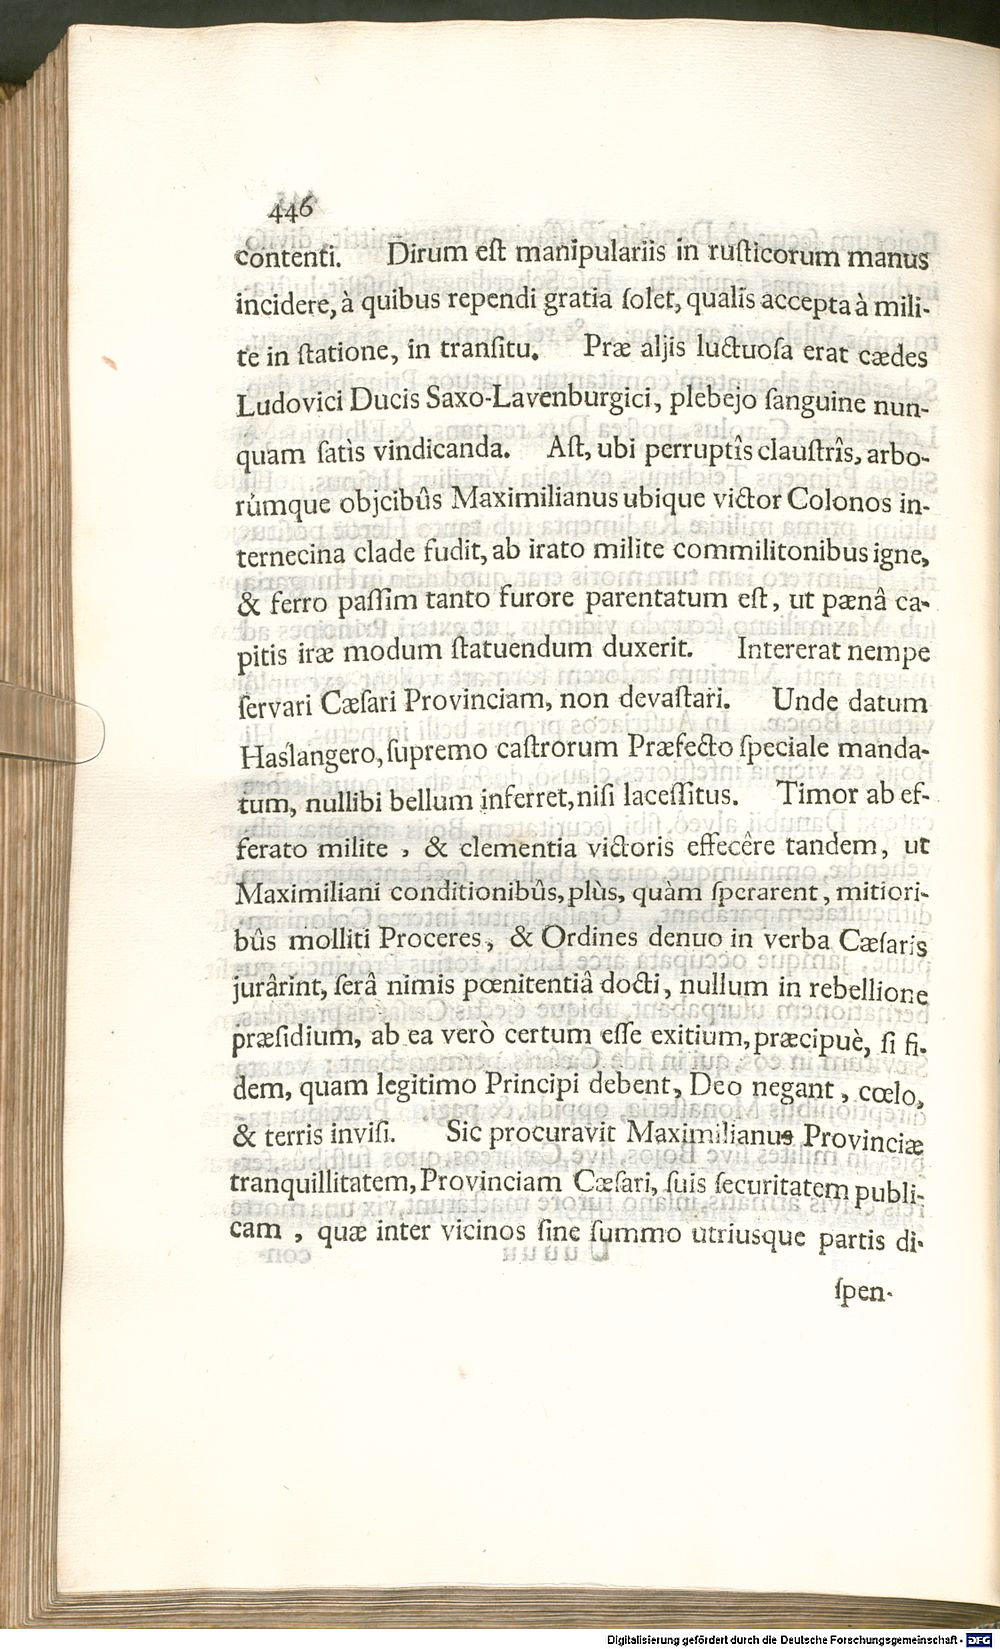 446
contenti. Dirum eſt manipulariis in ruſticorum manus
incidere, à quibus rependi gratia ſolet, qualis accepta à mili-
te in ſtatione, in tranſitu. Præ aljis luctuoſa erat cædes
Ludovici Ducis Saxo-Lavenburgici, plebejo ſanguine nun-
quam ſatìs vindicanda. Aſt, ubi perruptîs clauſtrîs, arbo-
rúmque objcibûs Maximilianus ubique victor Colonos in-
ternecina clade fudit, ab irato milite commilitonibus igne,
& ferro paſſim tanto furore parentatum eſt, ut pænâ ca-
pitis iræ modum ſtatuendum duxerit. Intererat nempe
ſervari Cæſari Provinciam, non devaſtari. Unde datum
Haslangero, ſupremo caſtrorum Præfecto ſpeciale manda-
tum, nullibi bellum inferret, niſi laceſſitus. Timor ab ef-
ferato milite, & clementia victoris effecêre tandem, ut
Maximiliani conditionibûs, plùs, quàm ſperarent, mitiori-
bûs molliti Proceres, & Ordines denuo in verba Cæſaris
jurârint, ſerâ nimis pœnitentiâ docti, nullum in rebellione
præſidium, ab ea verò certum eſſe exitium, præcipuè, ſi fi-
dem, quam legitimo Principi debent, Deo negant, cœlo,
& terris inviſi. Sic procuravit Maximilianus Provinciæ
tranquillitatem, Provinciam Cæſari, ſuis ſecuritatem publi-
cam, quæ inter vicinos ſine ſummo utriusque partis di-
ſpen-
Digitalisierung gefördert durch die Deutsche Forschungsgemeinschaft - DFG